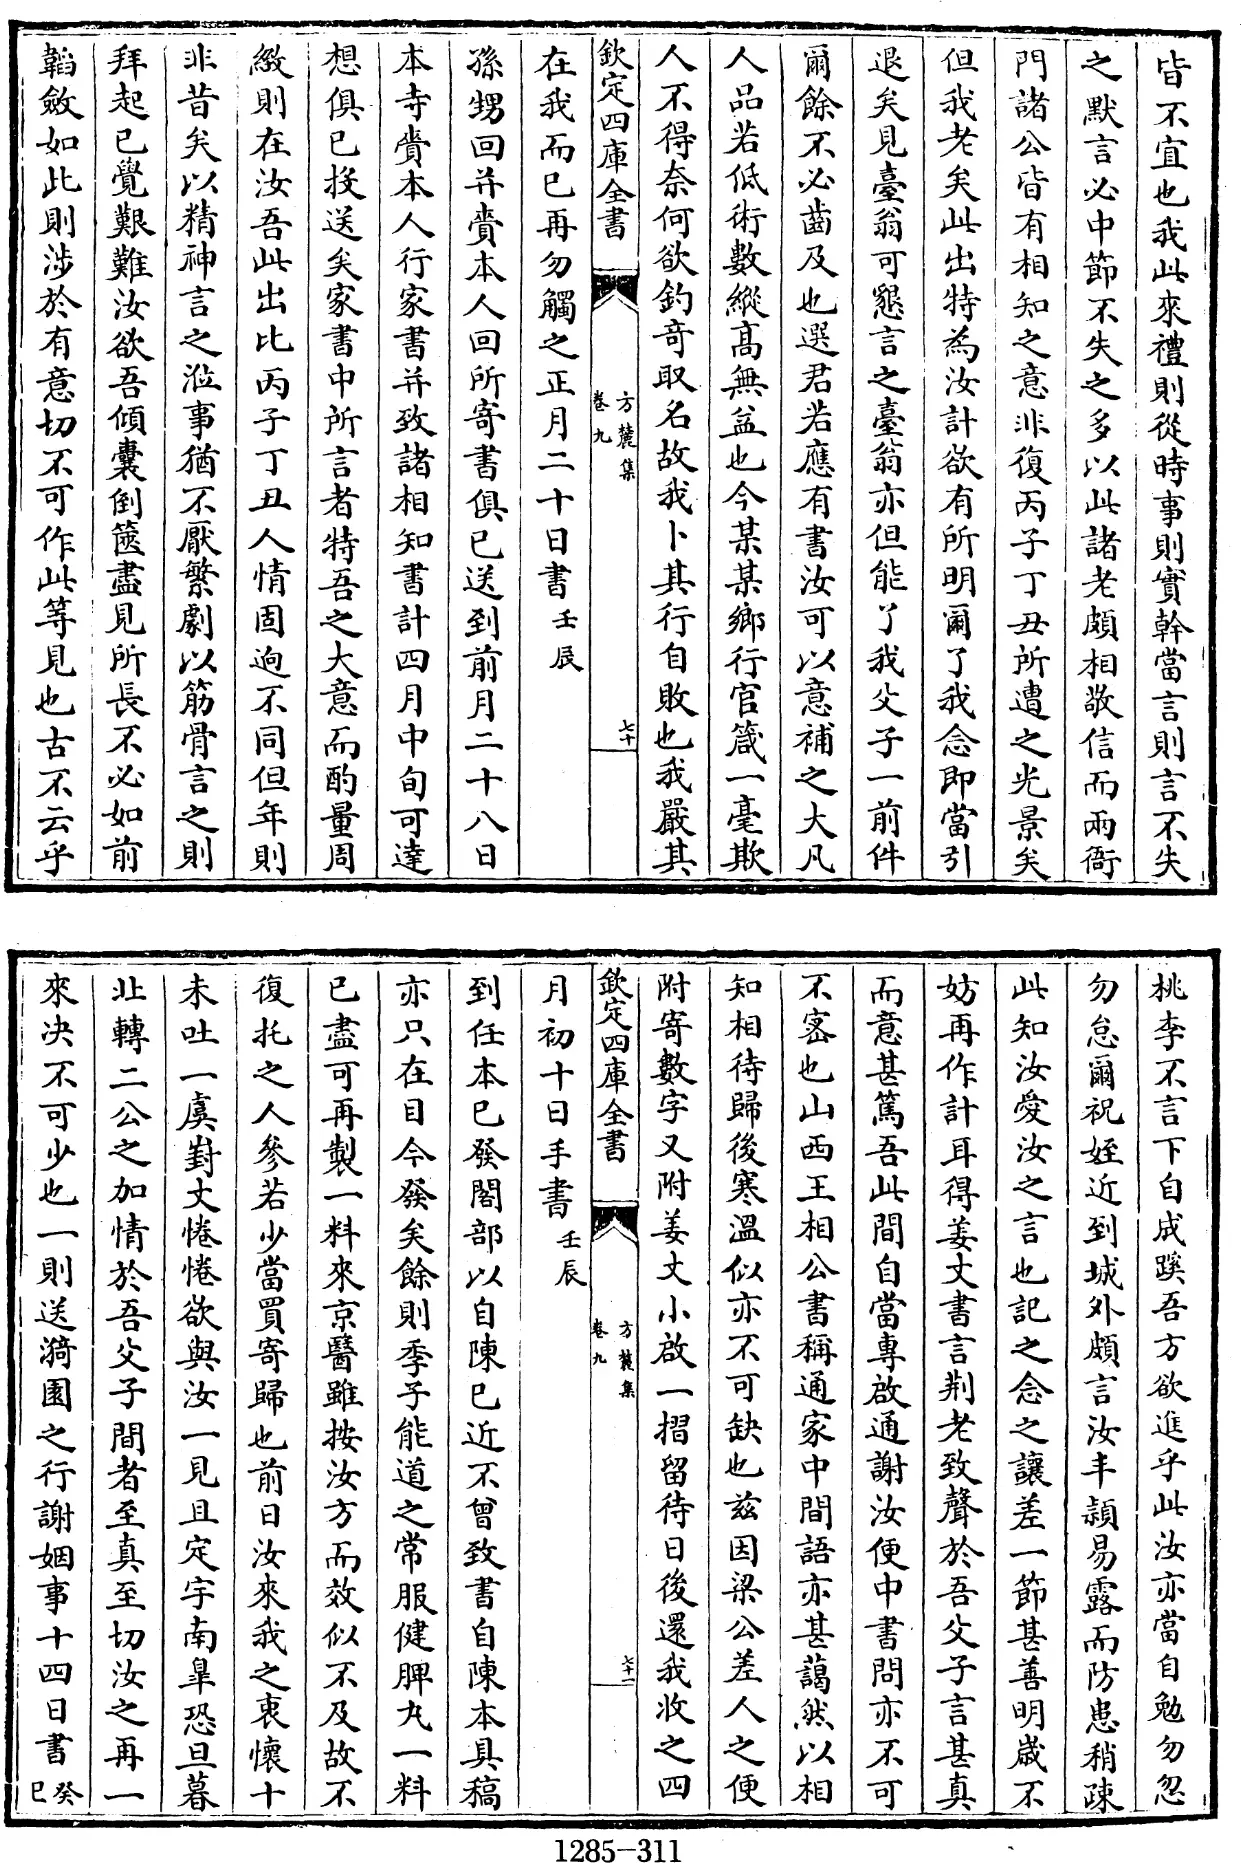 皆不宜也我此來禮則從時事則實幹當言則言不失
之默言必中節不失之多以此諸老頗相敬信而兩衙
門諸公皆有相知之意非復丙子丁丑所遭之光景矣
但我老矣此出特為汝計欲有所明爾了我念即當引
退矣見臺翁可懇言之臺翁亦但能了我父子一前件
爾餘不必齒及也選君若應有書汝可以意補之大凡
人品若低術數縱高無益也今某某鄉行官箴一毫欺
人不得奈何欲釣奇取名故我卜其行自敗也我嚴其
欽定四庫全書
方麓集
卷九
七十
在我而已再勿觸之正月二十日書壬辰
孫甥回并賫本人回所寄書俱已送到前月二十八日
本寺賫本人行家書并致諸相知書計四月中旬可達
想俱已投送矣家書中所言者特吾之大意而酌量周
緻則在汝吾此出比丙子丁丑人情固逈不同但年則
非昔矣以精神言之涖事猶不厭繁劇以筋骨言之則
拜起已覺艱難汝欲吾傾囊倒篋盡見所長不必如前
韜斂如此則涉於有意切不可作此等見也古不云乎
桃李不言下自成蹊吾方欲進乎此汝亦當自勉勿忽
勿怠爾祝姪近到城外頗言汝丰頴易露而防患稍疎
此知汝愛汝之言也記之念之讓差一節甚善明歲不
妨再作計耳得姜丈書言荆老致聲於吾父子言甚真
而意甚篤吾此間自當專啟通謝汝便中書問亦不可
不宻也山西王相公書稱通家中間語亦甚藹然以相
知相待歸後寒溫似亦不可缺也兹因梁公差人之便
附寄數字又附姜丈小啟一摺留待日後還我收之四
欽定四庫全書
方麓集
卷九
七十一
月初十日手書壬辰
到任本已發閣部以自陳已近不曾致書自陳本具稿
亦只在目今發矣餘則季子能道之常服健脾丸一料
已盡可再製一料來京醫雖按汝方而效似不及故不
復托之人參若少當買寄歸也前日汝來我之衷懷十
未吐一虞對丈惓惓欲與汝一見且定宇南皐恐旦暮
北轉二公之加情於吾父子間者至真至切汝之再一
來决不可少也一則送漪園之行謝姻事十四日書癸巳
1285-311